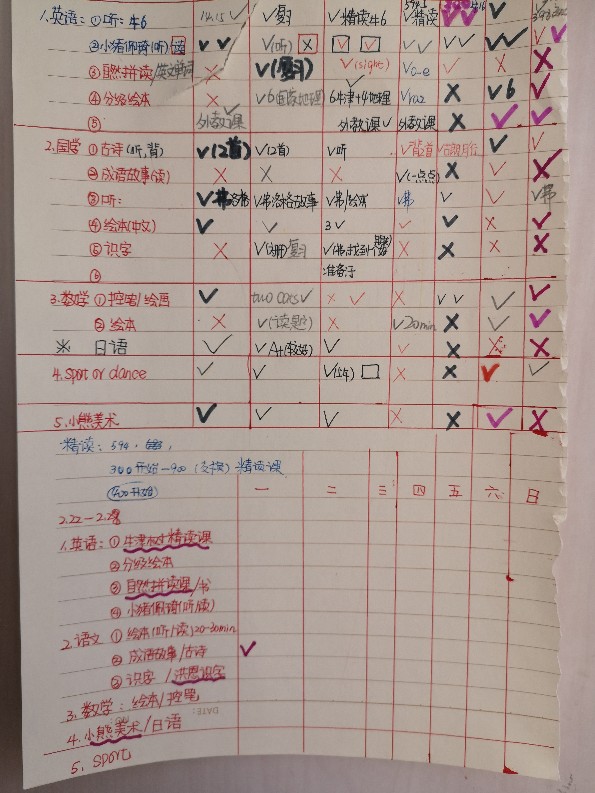 1.英语: ①听: 牛6 14.15 ✓ ✓复习 ✓精读牛6 ✓精读 ✓✓ ✓
②小猪佩奇(听)读 ✓✓ ✓(听) ☒ ☑ ☑ ✓✓ ✓✓ ✓✓ ✓✓
③自然拼读/英文单词 × ✓(复习) ✓(sight) ✓o-e ✓ × ×
④分级绘本 × ✓6国家地理 6牛津+4地理 ✓raz × ✓6 ✓
⑤ 外教课✓ 外教课✓ 外教课 × ✓ ✓
2.国学 ①古诗(听,背) ✓(2首) ✓(2首) ✓听 ✓ ✓ ✓
②成语故事(读) × × × ✓(一点点) × ✓ ×
③听: ✓ ✓弗洛格故事 ✓弗/绘本 ✓弗 ✓ ✓ ✓弗
④绘本(中文) ✓ ✓ 3✓ ✓ ✓ × ✓
⑤识字 × ✓ 复习 ✓ × × × ×
⑥ 准备了
3.数学 ①控笔/绘画 ✓ two cars✓ × ✓ × ✓✓ ✓ ✓
②绘本 × ✓(读题) × ✓20min × ✓ ✓
※ 日语 ✓ ✓ ✓ ✓ × × ×
4.sport or dance ✓ ✓ ✓ □ × × ✓ ✓
5.小熊美术 ✓ ✓ ✓ × × ✓ ×
精读: 594.
300开始—900 (支撑) 精读课
400开始 一 二 三 四 五 六 日
2.22—2.28
1.英语: ①牛津树精读课
②分级绘本
③自然拼读课/书
④小猪佩奇(听/读)
2.语文 ①绘本(听/读)20-30min
②成语故事/古诗 ✓
③识字/洪恩识字
3.数学: 绘本/控笔
DATE:
4.小熊美术/日语
5. sport